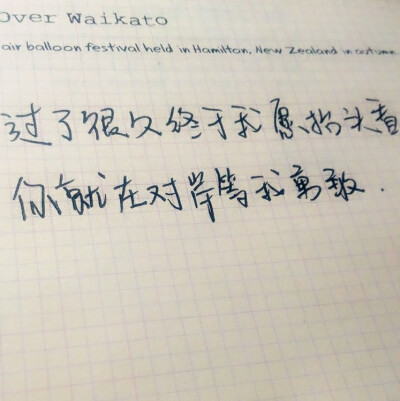 Over Waikato
air balloon festival held in Hamilton, New Zealand in autumn
过了很久终于我愿抬头看
你就在对岸等我勇敢.